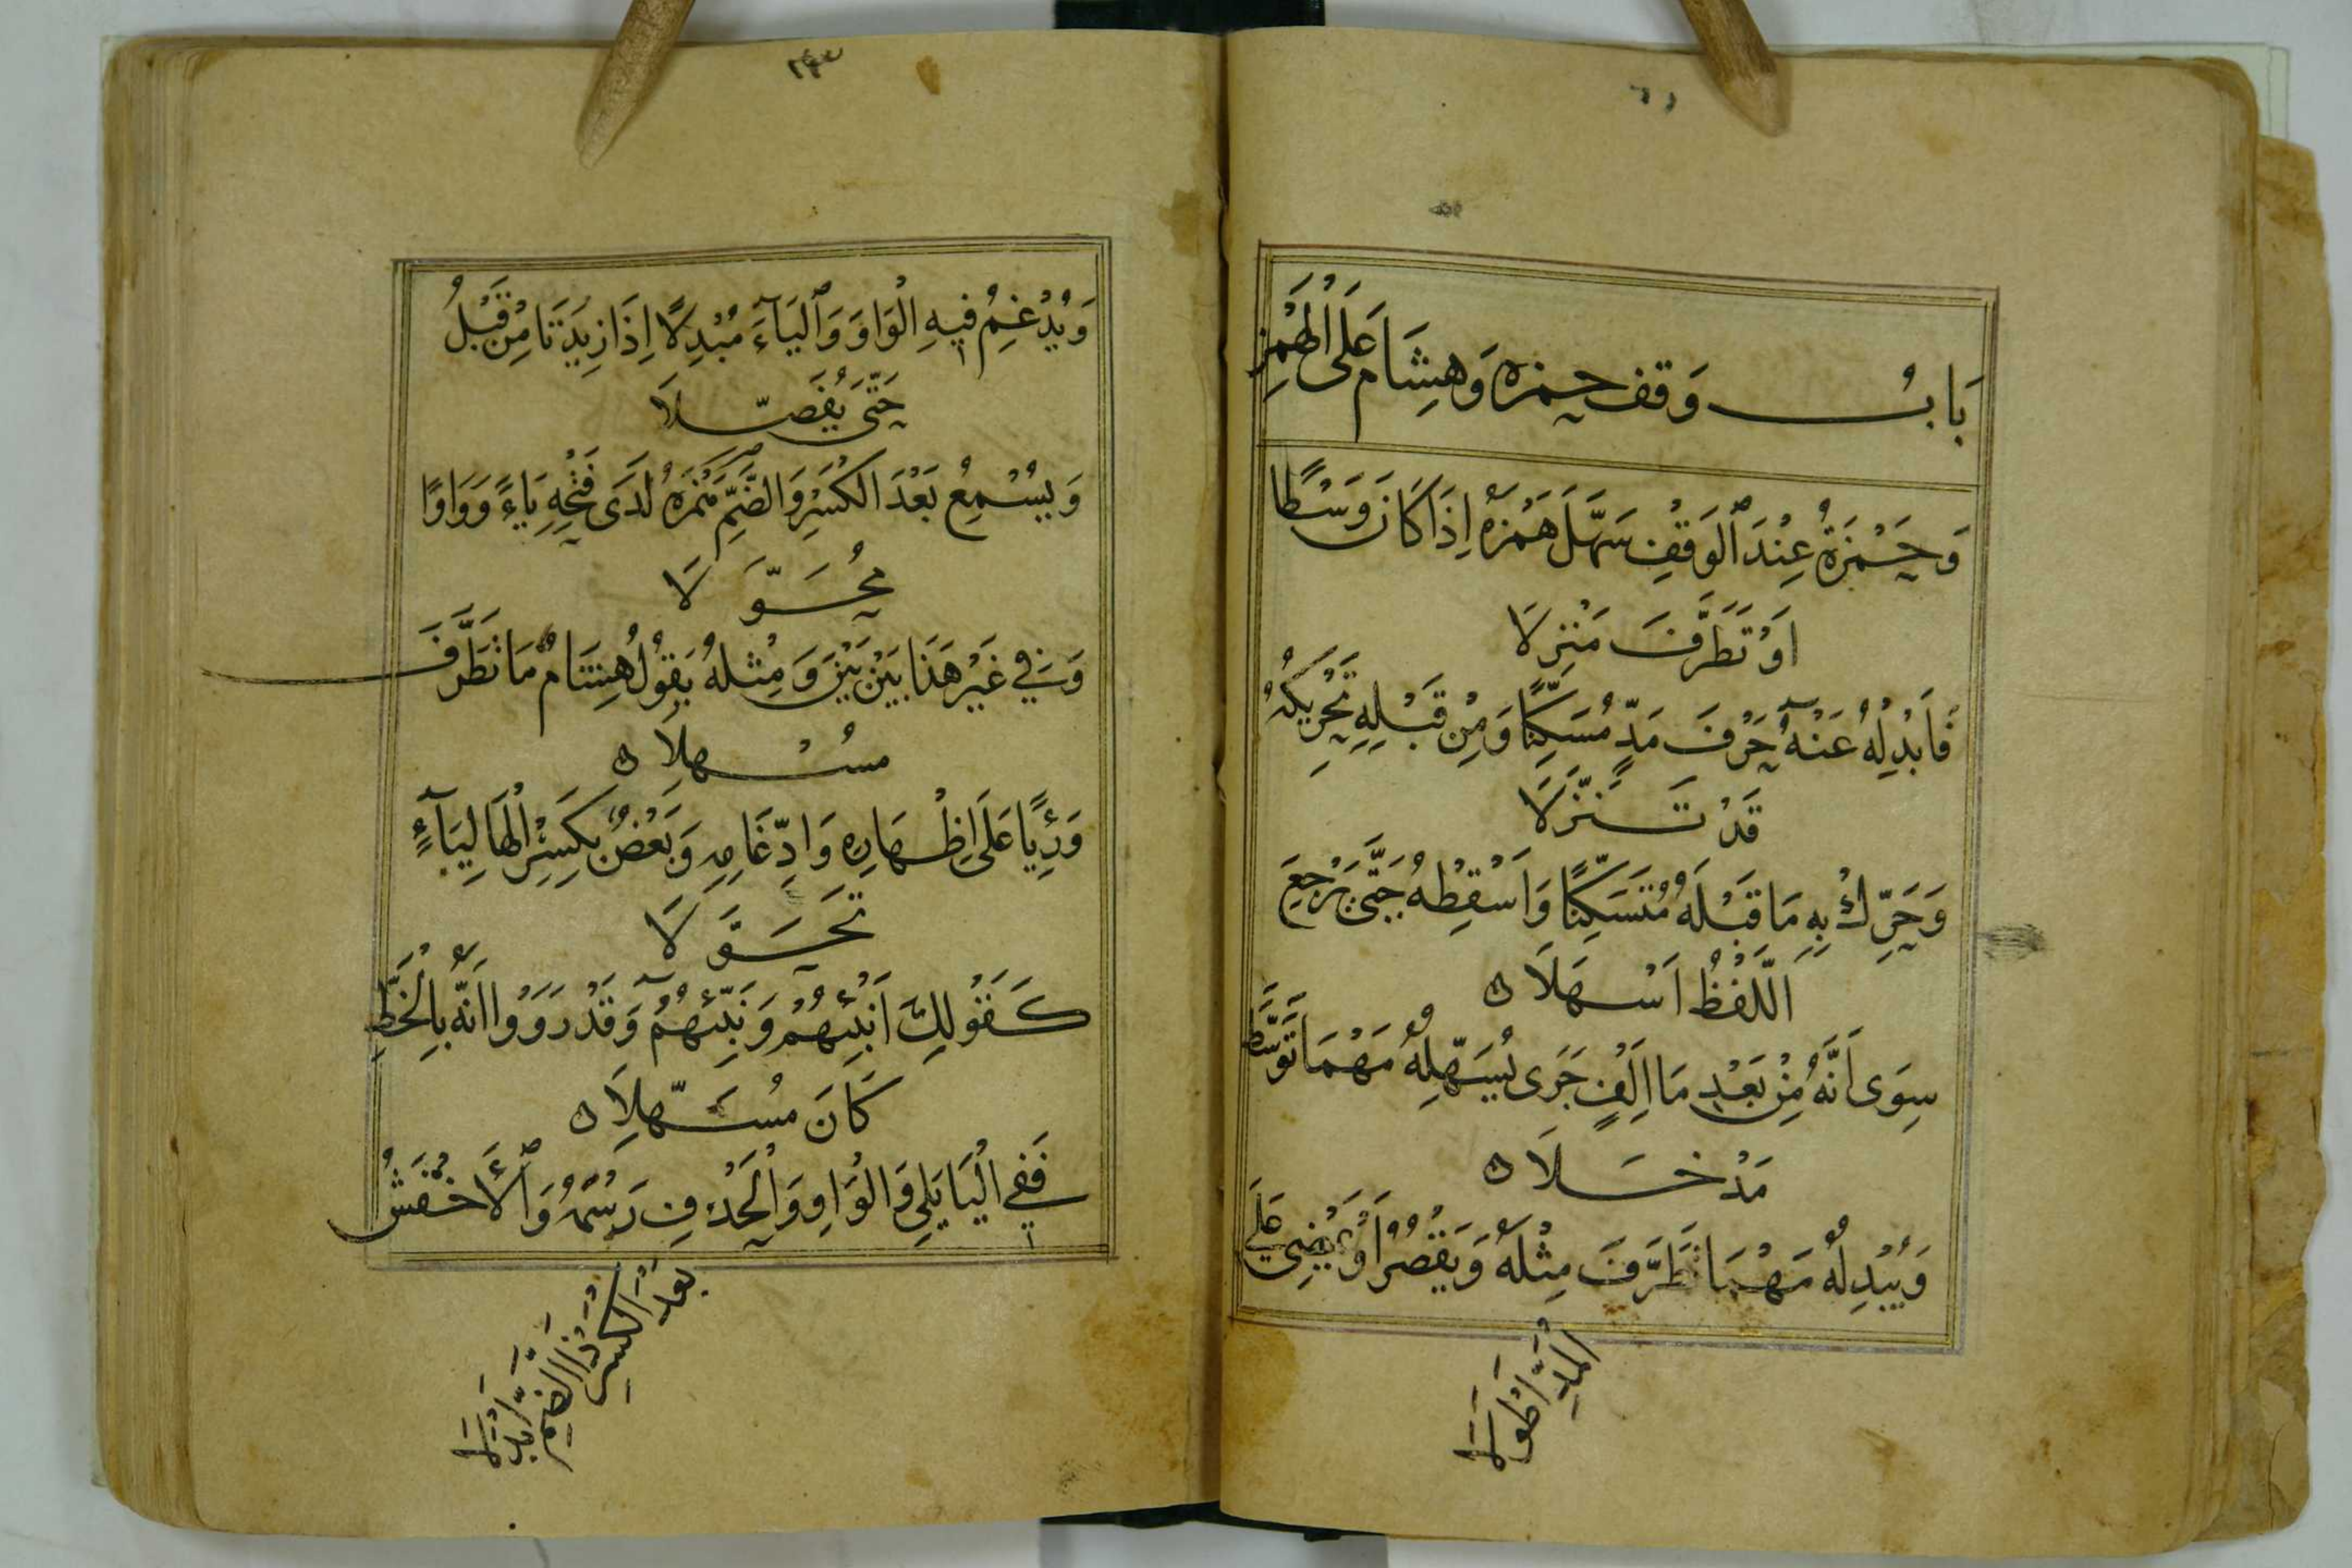 بَابُ وَقف حمزه وَهِشَام عَلَى الْهَمْزِ
وَحَمْزَةُ عِنْدَ ٱلْوَقْفِ سَهَّلَ هَمْزَهُ اِذَا كَانَ وَسْطًا
اَوْ تَطَرَّفَ مَنْزِلَا
فَاَبْدِلْهُ عَنْهُ حَرْفَ مَدٍّ مُسَكِّنًا وَمِنْ قَبْلِهِ تَحْرِيكُهُ
قَدْ تَنَزَّلَا
وَحَرِّكْ بِهِ مَا قَبْلَهُ مُتَسَكِّنًا وَاَسْقِطْهُ حَتَّى يَرْجِعَ
اَللَّفْظُ اَسْهَلَا ه
سِوَى اَنَّهُ مِنْ بَعْدِ مَا اَلِفٍ جَرَى يُسَهِّلُهُ مَهْمَا تَوَسَّطَ
مَدْخَلَا ه
وَيُبْدِلُهُ مَهْمَا تَطَرَّفَ مِثْلَهُ وَيَقْصُرُ اَوْ يَمْضِي عَلَى
الْمَدِّ اَطْوَلَا
٢٣
وَيُدْغِمُ فِيهِ الْوَاوَ وَٱلْيَآءَ مُبْدِلًا اِذَا زِيدَتَا مِنْ قَبْلُ
حَتَّى يُفَصَّلَا
وَيُسْمِعُ بَعْدَ الْكَسْرِ وَالضَّمِّ هَمْزَهُ لَدَى فَتْحِهِ يَاءً وَوَاوًا
مُحَوَّلَا
وَفِي غَيْرِ هَذَا بَيْنَ بَيْنَ وَمِثْلُهُ يَقُولُ هِشَامٌ مَا تَطَرَّفَ
مسُْهلِا ه
وَرِئْيًا عَلَى اِظْهَارِهِ وَادِّغَامِهِ وَبَعْضٌ بِكَسْرِ الْهَا لِيَآءٍ
تَحَوَّلَا
كَقَوْلِكَ اَنْبِئْهُمْ وَنَبِّئْهُمُ وَقَدْ رَوَوْا اَنَّهُ بِالْخَطِّ
كَانَ مُسَهِّلَا ه
فَفِي الْيَا يَلِي وَالْوَاوِ وَالْحَذْفِ رَسْمَهُ وَٱلْأَخْفَشُ
بَعْدَ الْكَسْرِ ذَا الضَّمِّ اَبْدَلَا